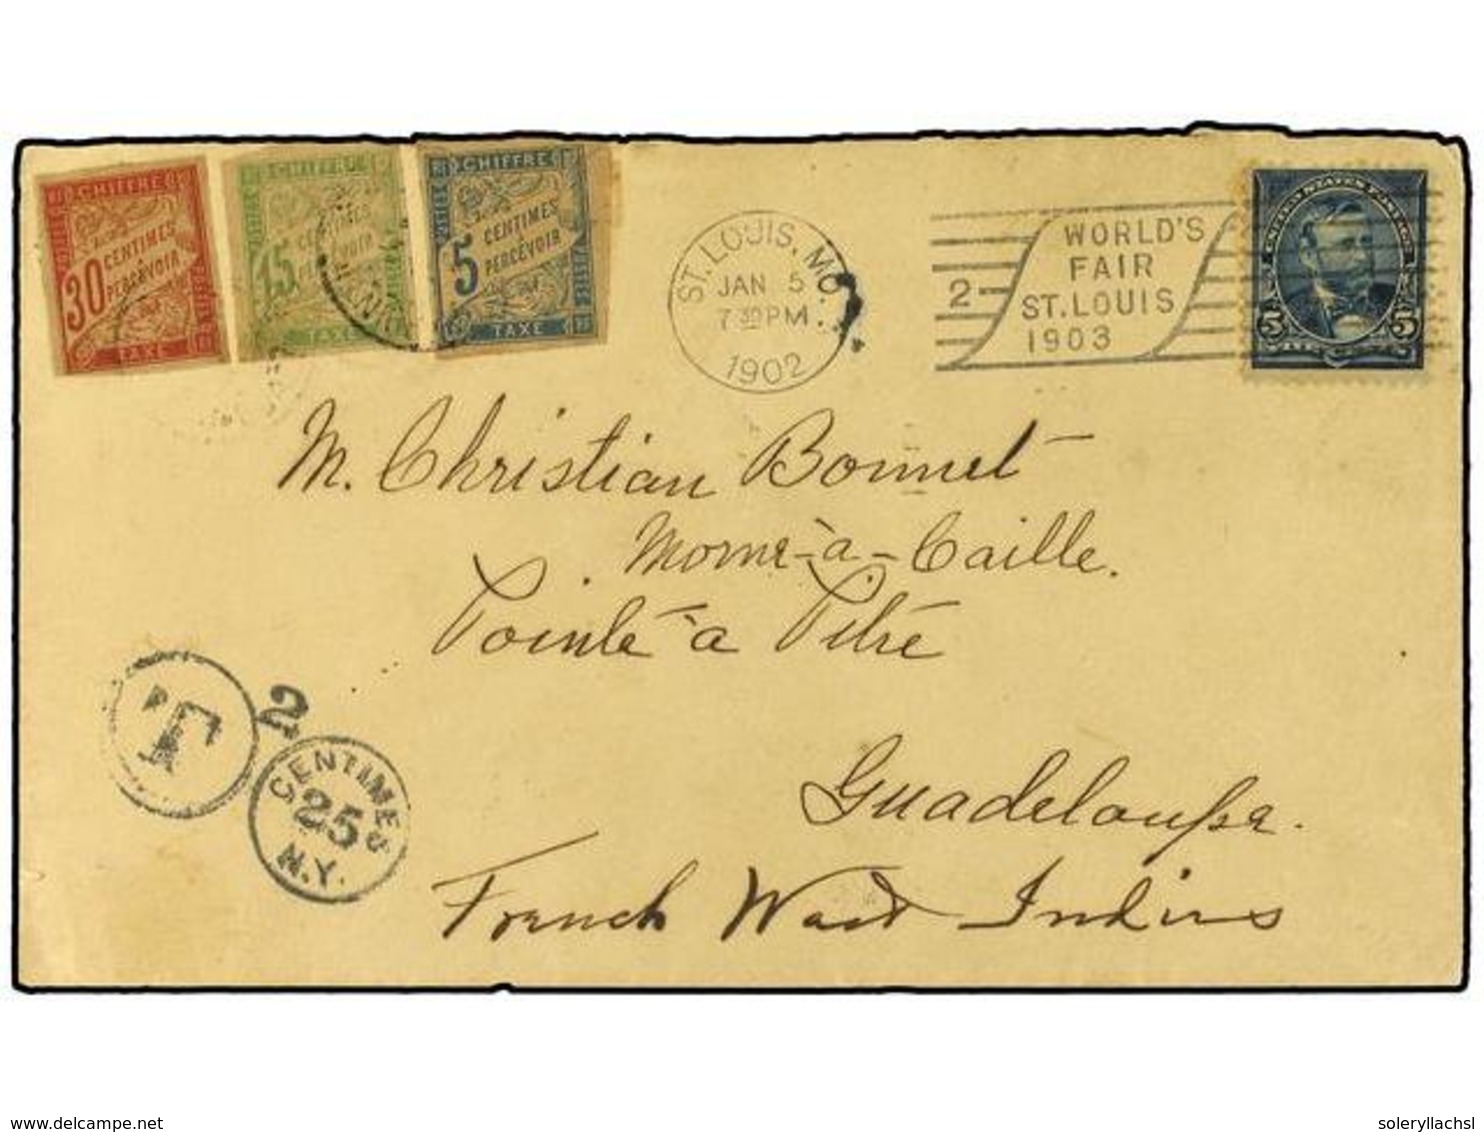 CHIFFRE
30 CENTIMES
A
PERCEVOIR
TAXE
CHIFFRE
15
TAXE
POSTES
CHIFFRE
5 CENTIMES
À
PERCEVOIR
TAXE
ST. LOUIS, MO.
JAN 5
7 30 PM
1902
2
WORLD'S
FAIR
ST. LOUIS
1903
UNITED STATES POSTAGE
5 5
M. Christian Bonnet
Morne-à-Caille.
Pointe-à Pitre
Guadeloupe.
French West Indies
T
2
CENTIMES
25
N.Y.
www.delcampe.net
soleryllachsl